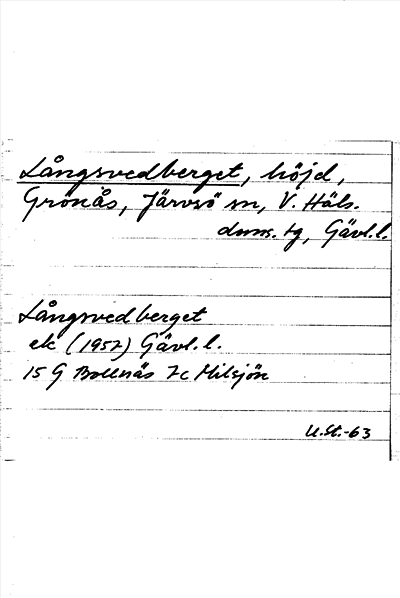 Långsvedberget, höjd,
Grönås, Järvsö sn, V. Häls.
doms. tg, Gävl.l.
Långsvedberget
ek (1957) Gävl.l.
15 G Bollnäs 7c Milsjön
U.St.-63